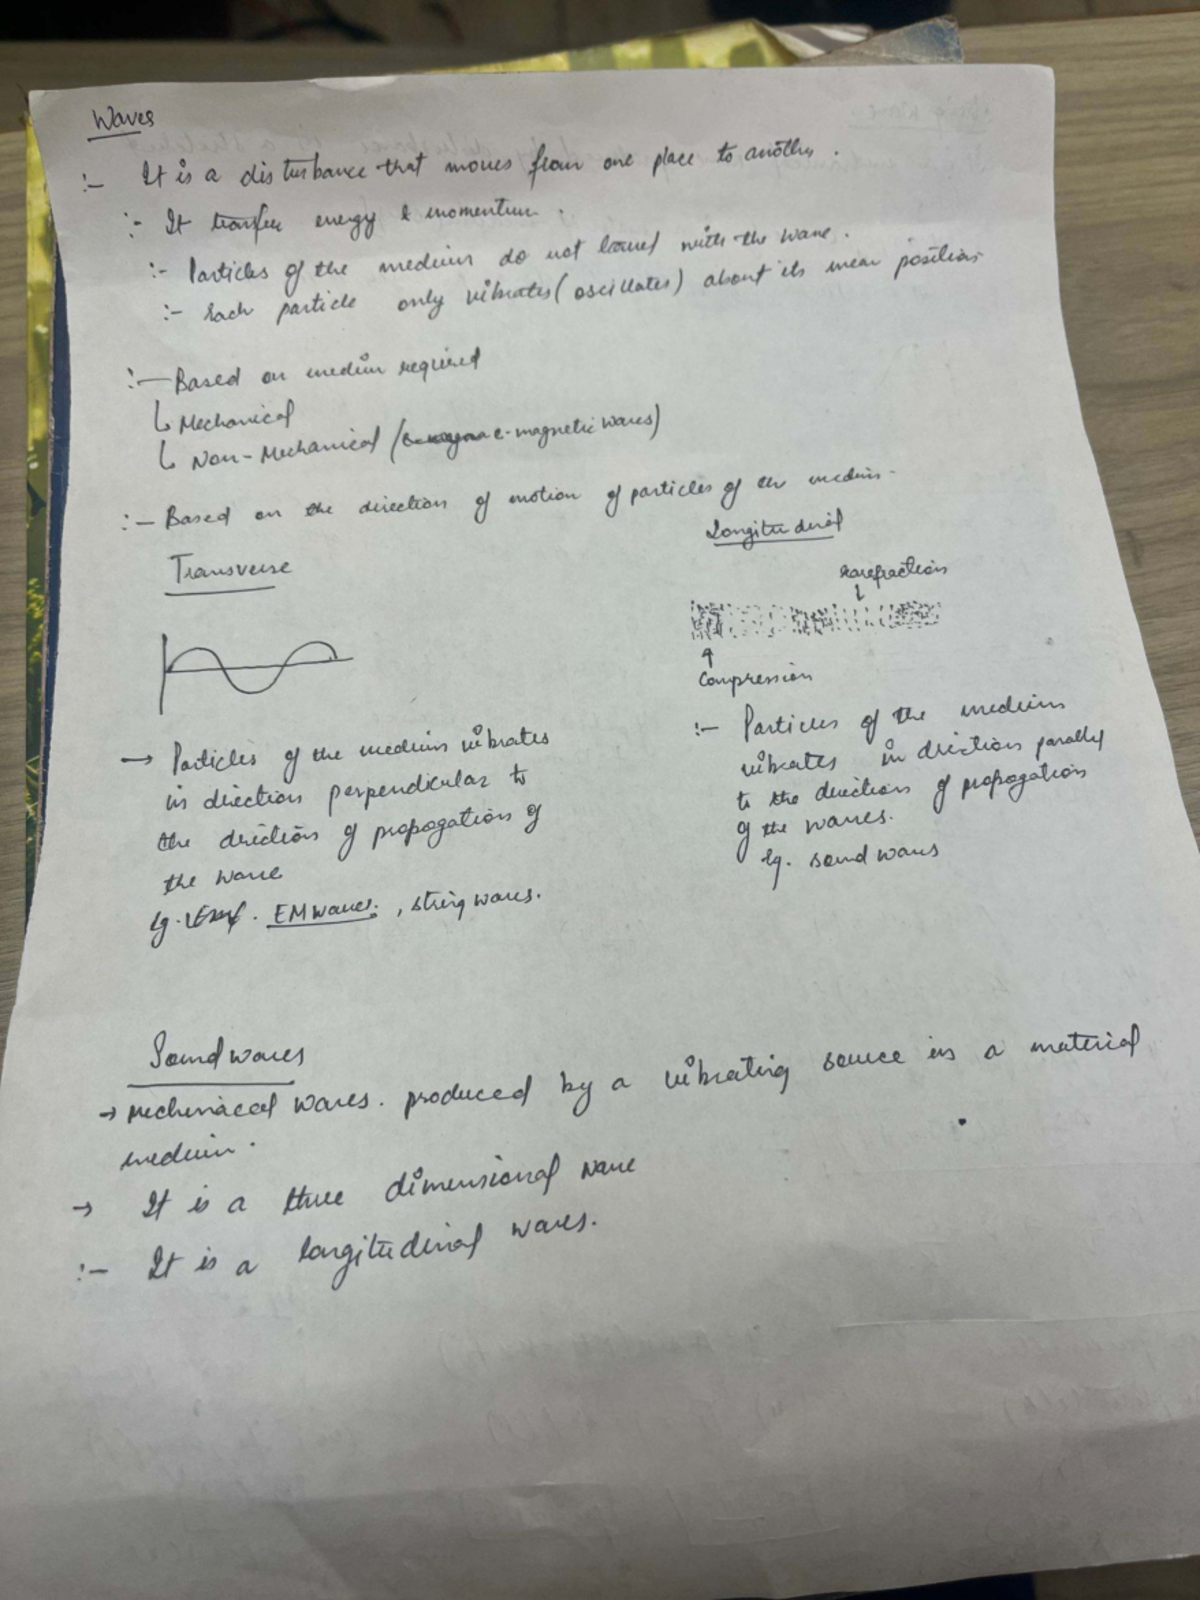 Waves
:- It is a disturbance that moves from one place to another.
:- It transfer energy & momentum.
:- Particles of the medium do not travel with the wave.
:- Each particle only vibrates (oscillates) about its mean position
:- Based on medium required
↳ Mechanical
↳ Non-Mechanical (e-magnetic waves)
:- Based on the direction of motion of particles of the medium.
Transverse
Longitudinal
rarefraction
Compression
→ Particles of the medium vibrates
in direction perpendicular to
the direction of propogation of
the wave
Eg. EM waves, string waves.
:- Particles of the medium
vibrates in direction parallel
to the direction of propogation
of the waves.
Eg. sound waves
Sound waves
→ Mechanical waves. produced by a vibrating source in a material
medium.
→ It is a three dimensional wave
:- It is a longitudinal waves.